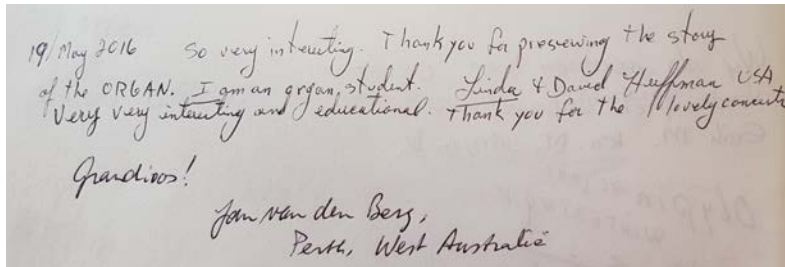 19/May 2016 So very interesting. Thank you for preserving the story
of the ORGAN. I am an organ student. Linda & David Huffman USA
Very very interesting and educational. Thank you for the lovely concert
Grandioos!
Jan van den Berg,
Perth, West Australië